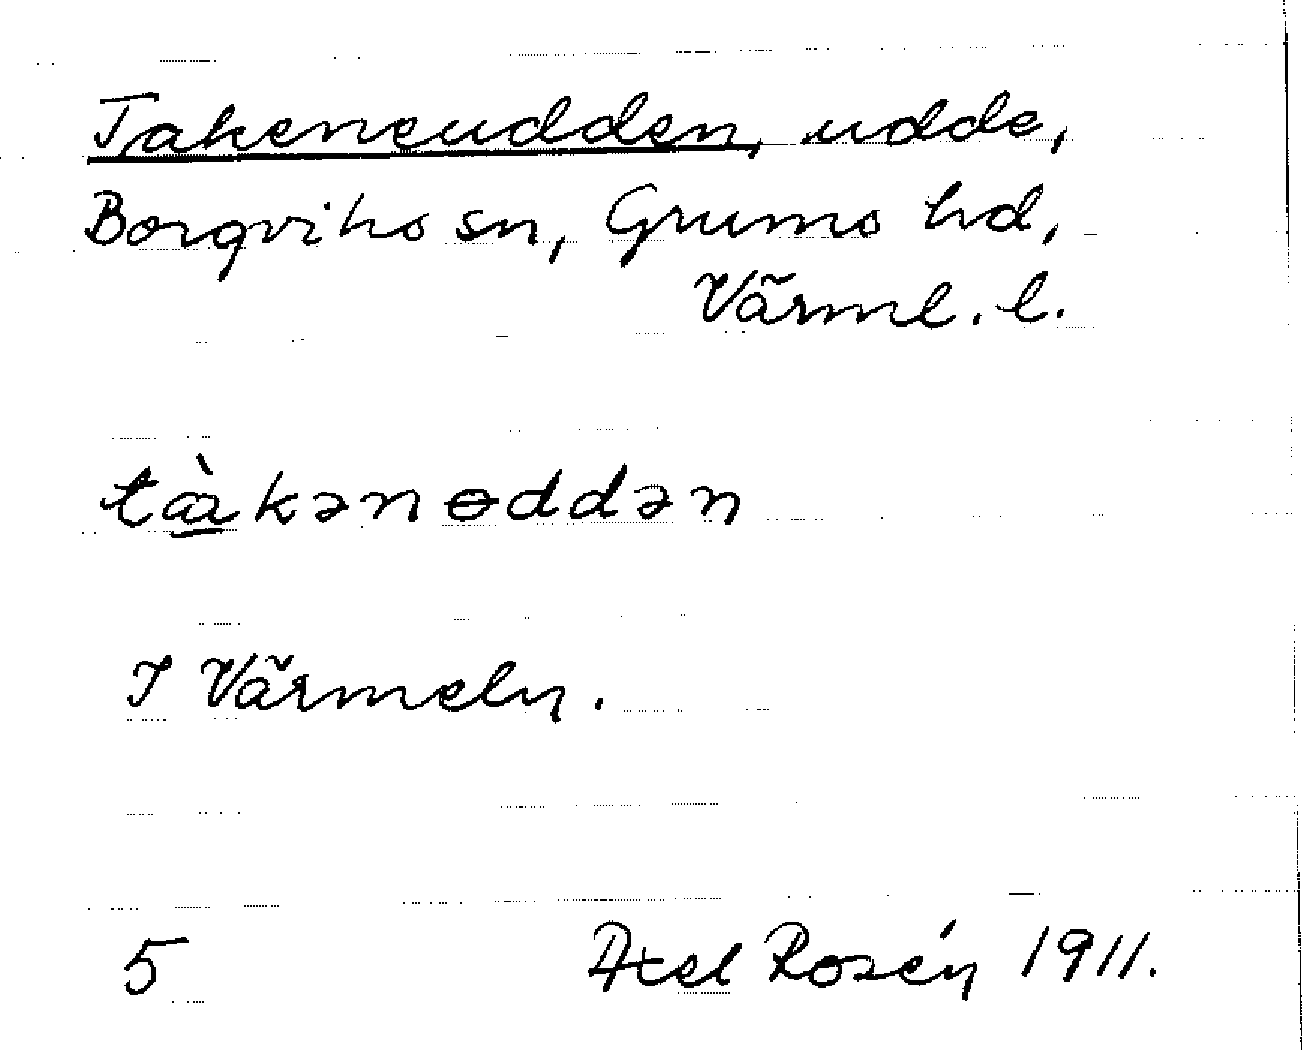 Takeneudden, udde,
Borgviks sn, Grums hd,
Värml. l.
tàːkənɵddən
I Värmeln.
5 Axel Rosén 1911.